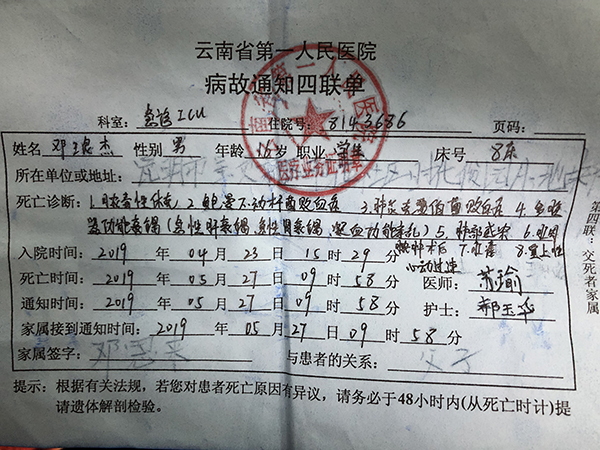 云南省第一人民医院
病故通知四联单
科室：急诊ICU 住院号：8143686 页码：
姓名 邓 杰 性别 男 年龄 15岁 职业 学生 床号 8床
所在单位或地址：
死亡诊断：1.脓毒性休克 2.鲍曼不动杆菌败血症 3.肺炎克雷伯菌败血症 4.多脏
器功能衰竭(急性肝衰竭、急性肾衰竭、凝血功能紊乱) 5.肺部感染 6.
术后 7. 8.室上性
心动过速
入院时间：2019 年 04 月 23 日 15 时 29 分
死亡时间：2019 年 05 月 27 日 09 时 58 分 医师：苏瑜
通知时间：2019 年 05 月 27 日 09 时 58 分 护士：郝玉华
家属接到通知时间：2019 年 05 月 27 日 09 时 58 分
家属签字：邓 与患者的关系：父子
提示：根据有关法规，若您对患者死亡原因有异议，请务必于48小时内(从死亡时计)提
请遗体解剖检验。
第四联：交死者家属
云南省第一人民医院
医疗业务证明章